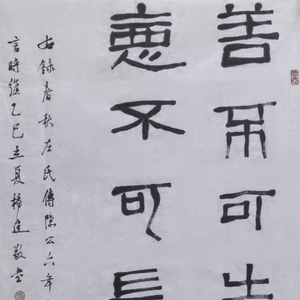 善不可失
惡不可長
右錄春秋左氏傳隱公六年
言時維乙巳立夏楊